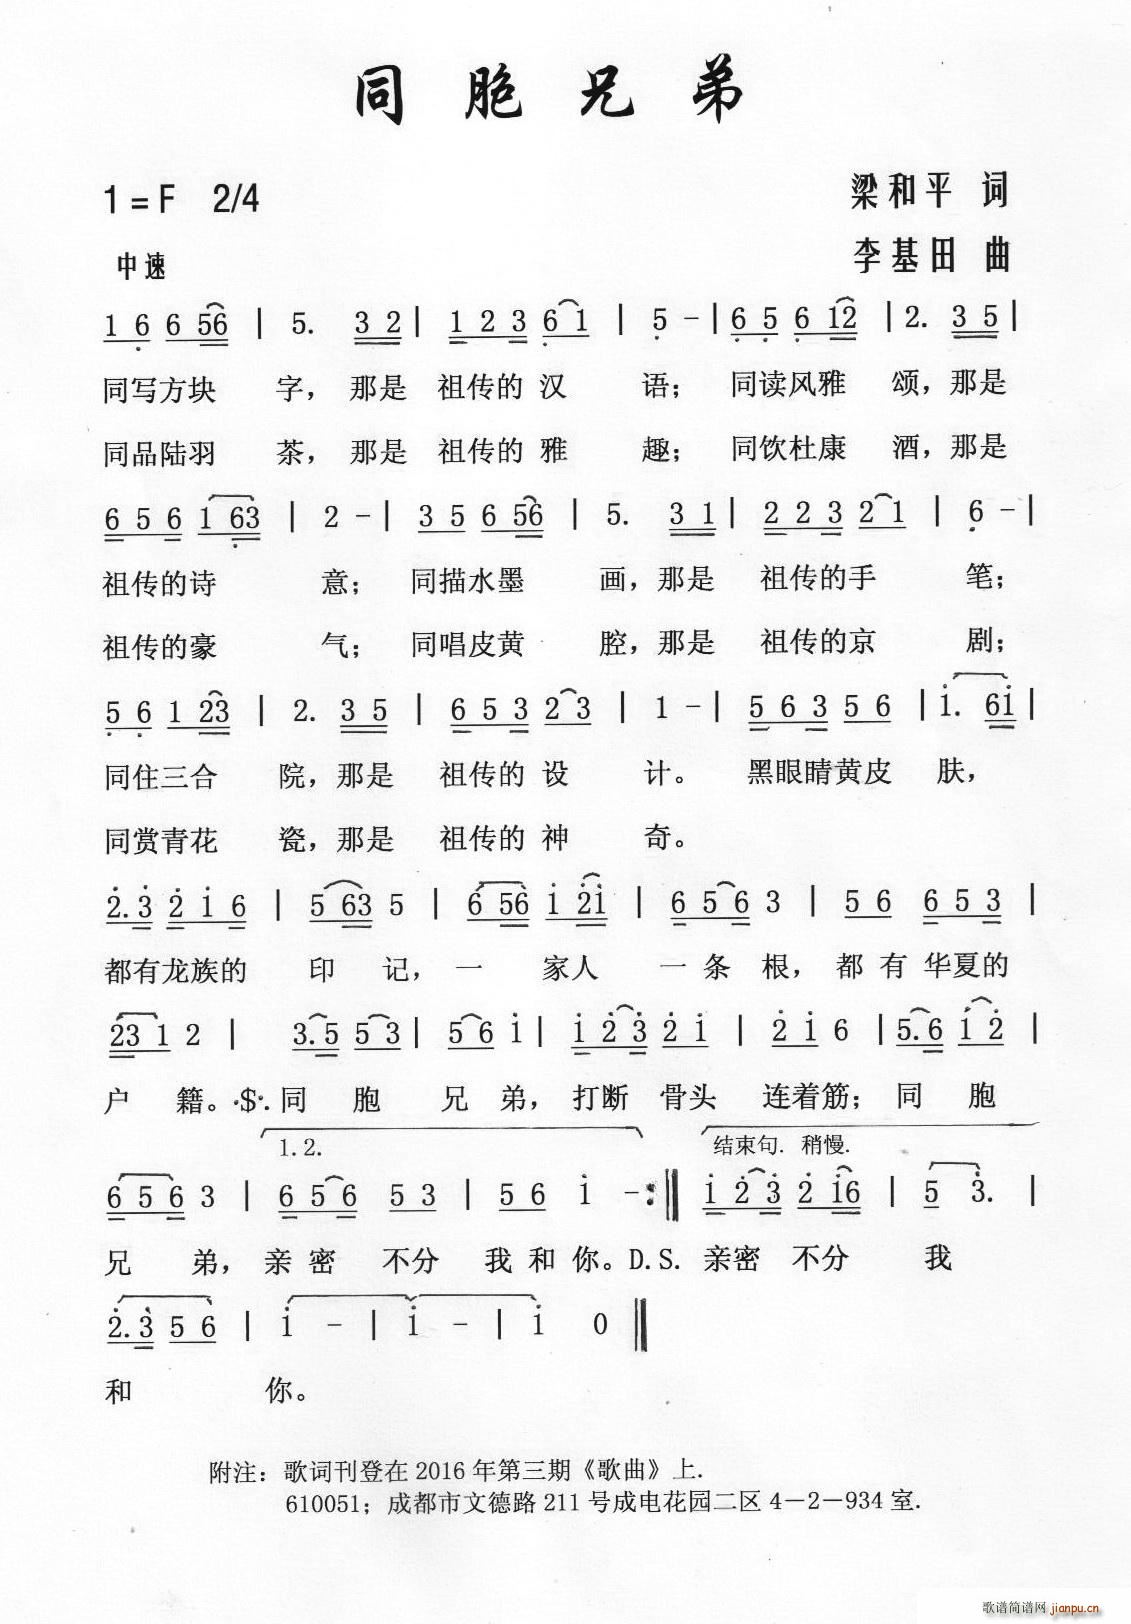 同胞兄弟
1=F 2/4
梁和平 词
中速
李基田 曲
1 6 6 56 | 5. 3 2 | 1 2 3 6 1 | 5 - | 6 5 6 12 | 2. 3 5 |
同写方块 字，那是 祖传的 汉 语；同读风雅 颂，那是
同品陆羽 茶，那是 祖传的 雅 趣；同饮杜康 酒，那是
6 5 6 1 63 | 2 - | 3 5 6 56 | 5. 3 1 | 2 2 3 2 1 | 6 - |
祖传的诗 意；同描水墨 画，那是 祖传的手 笔；
祖传的豪 气；同唱皮黄 腔，那是 祖传的京 剧；
5 6 1 23 | 2. 3 5 | 6 5 3 2 3 | 1 - | 5 6 3 5 6 | i. 6i |
同住三合 院，那是 祖传的 设 计。黑眼睛黄皮 肤，
同赏青花 瓷，那是 祖传的 神 奇。
2.3 2 i 6 | 5 63 5 | 6 56 i 2i | 6 5 6 3 | 5 6 6 5 3 |
都有龙族的 印 记，一 家人 一 条 根，都 有 华夏的
23 1 2 | 3.5 5 3 | 5 6 i | i 2 3 2 i | 2 i 6 | 5.6 i 2 |
户 籍。·$·.同 胞 兄 弟，打断 骨头 连着筋；同 胞
1.2. 结束句. 稍慢.
6 5 6 3 | 6 5 6 5 3 | 5 6 i - :‖ i 2 3 2 i6 | 5 3. |
兄 弟，亲 密 不分 我 和 你。D.S.亲密 不分 我
2.3 5 6 | i - | i - | i 0 ‖
和 你。
附注：歌词刊登在 2016 年第三期《歌曲》上.
610051；成都市文德路 211 号成电花园二区 4－2－934 室.
歌谱简谱网 jianpu.cn